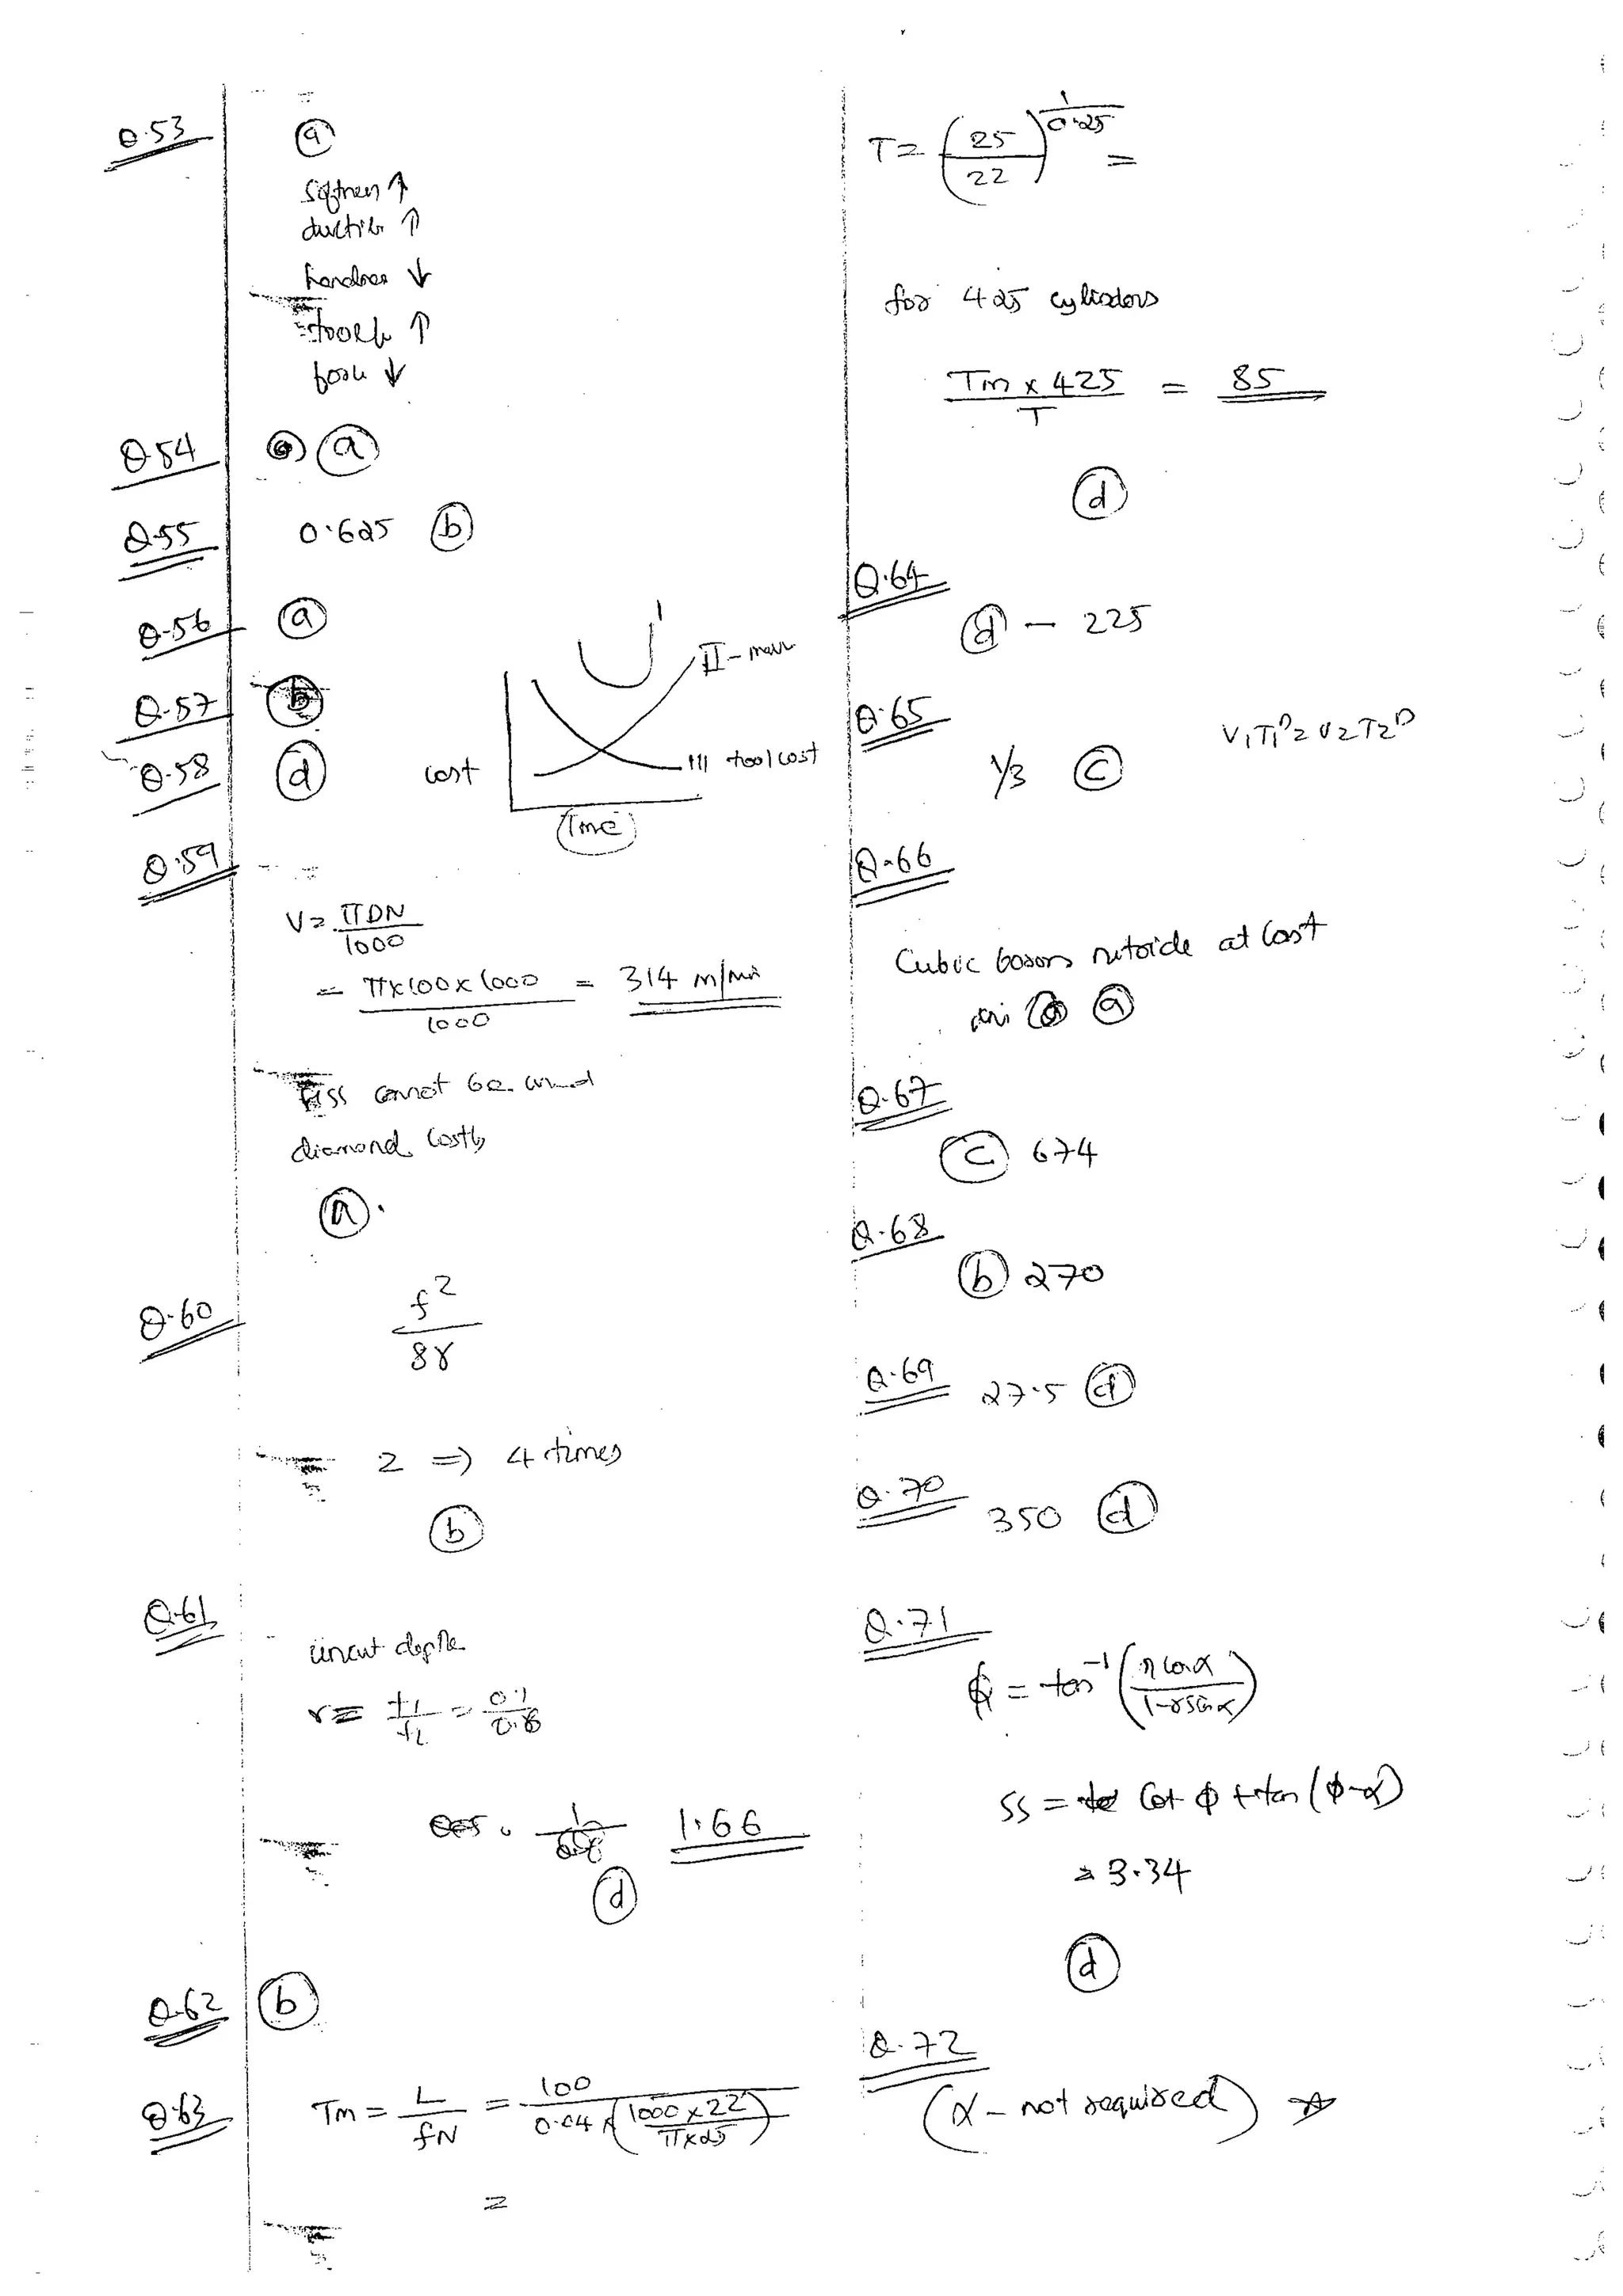 Q.53
(a)
Softnen ↑
ductili ↑
hardnes ↓
↑
↓
Q.54 (a)
Q.55 0.625 (b)
Q.56 (a)
Q.57 (b)
Q.58 (d)
cost
I
II -
III tool cost
Time
Q.59
V = πDN / 1000
= π×100×1000 / 1000 = 314 m/min
HSS cannot be used
diamond costly
(a).
Q.60
f² / 8r
2 ⇒ 4 times
(b)
Q.61
uncut depth
r = t1 / t2 =
1.66
(d)
Q.62 (b)
Q.63
Tm = L / fN = 100 / 0.04 × (1000×22 / π×25)
=
T = (25 / 22)^(1/0.25) =
for 425 cylinders
Tm × 425 / T = 85
(d)
Q.64
(d) – 225
Q.65
V1T1ⁿ = V2T2ⁿ
1/3 (c)
Q.66
Cubic boron nitride at cost
(a)
Q.67
(c) 674
Q.68
(b) 270
Q.69 27.5 (d)
Q.70
350 (d)
Q.71
ϕ = tan⁻¹ (r cos α / 1-r sin α)
SS = Cot ϕ + tan (ϕ-α)
= 3.34
(d)
Q.72
(α – not required) ☆